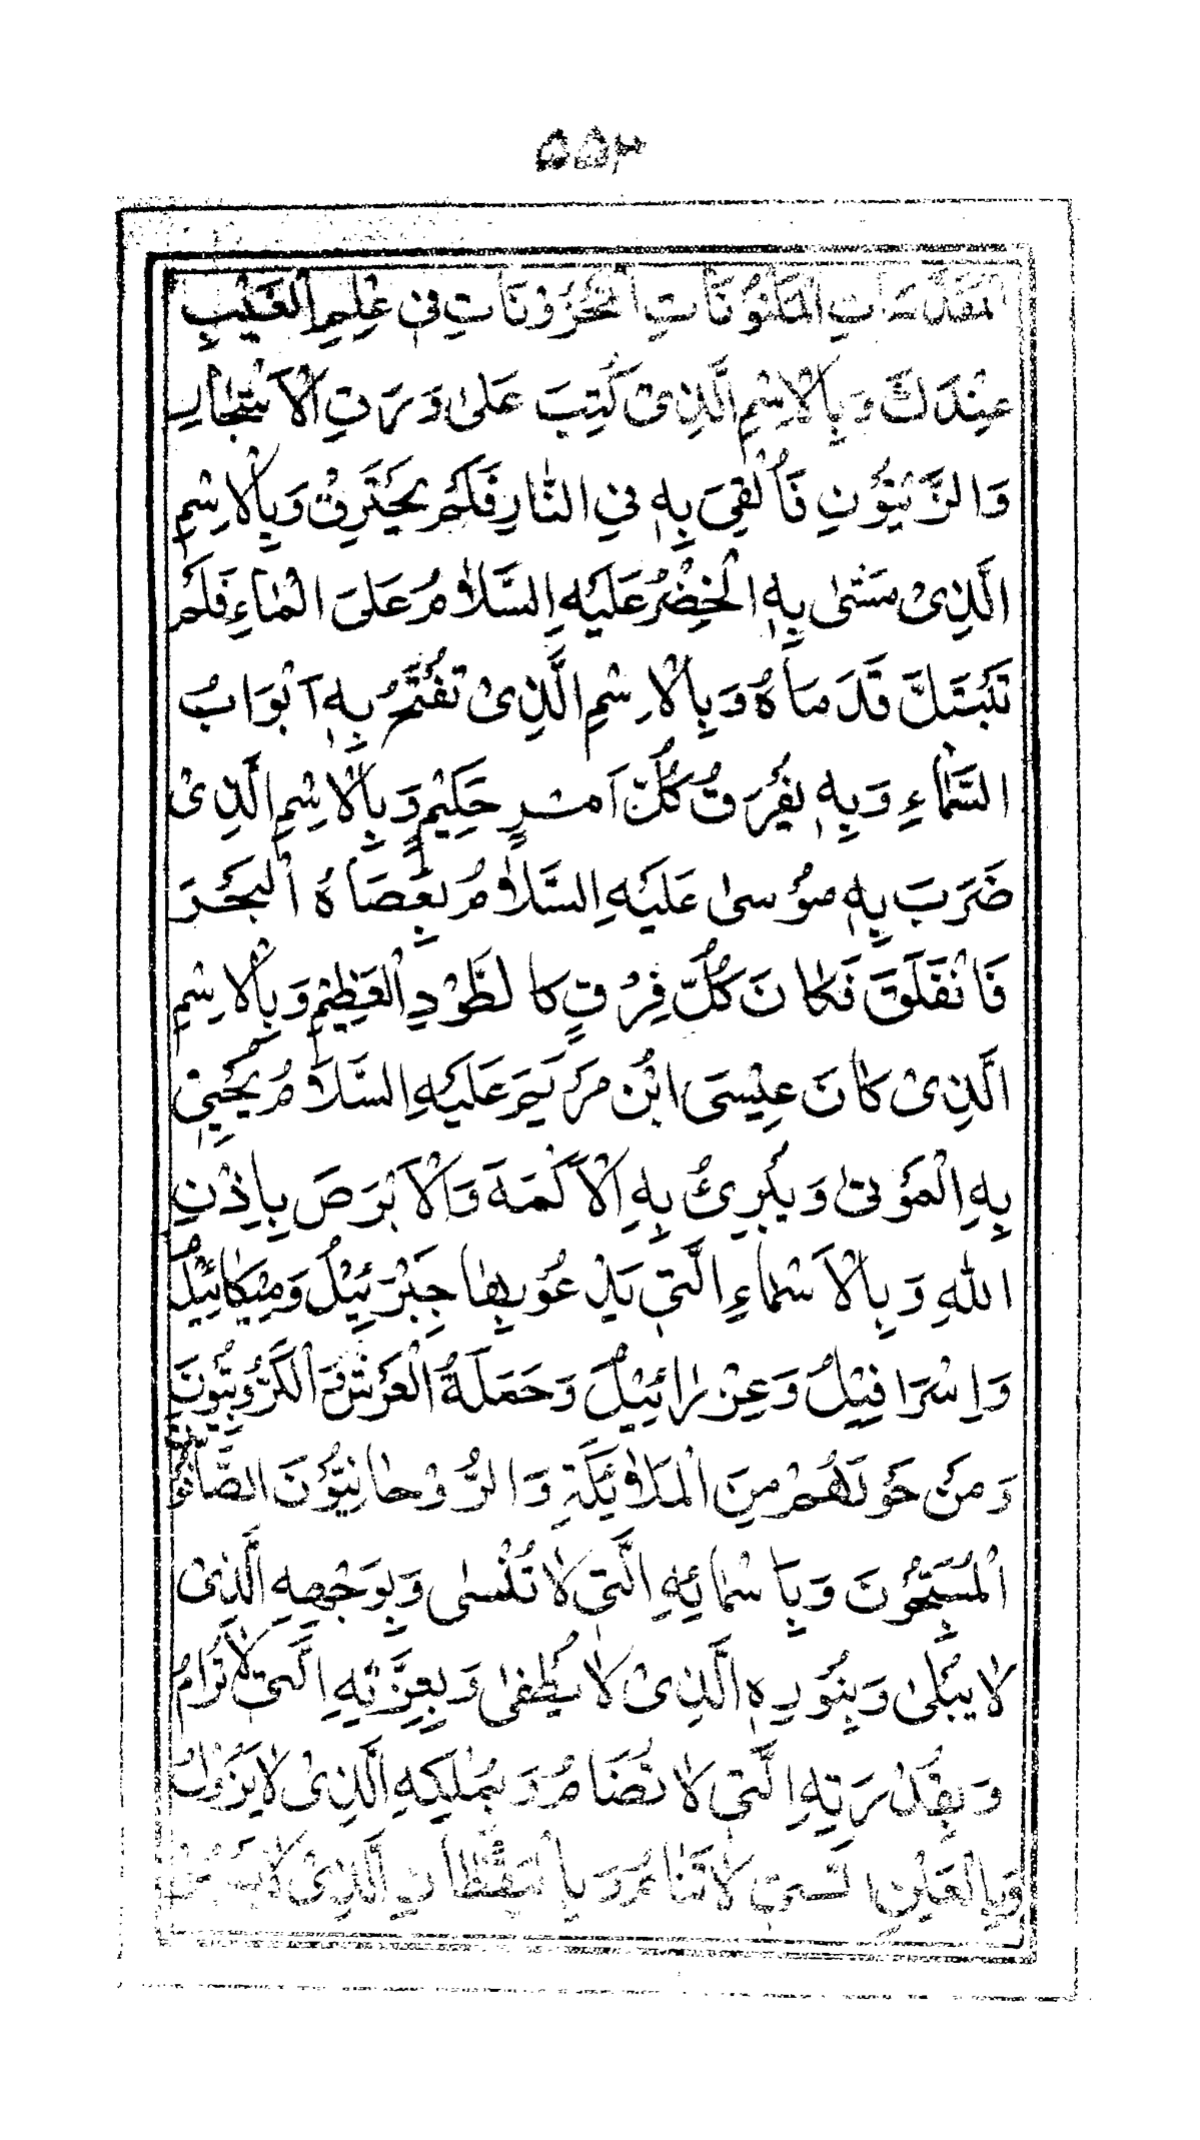 ۵۵۳
الْمُقَدَّسَاتِ الْمَكْنُوْنَاتِ الْمَخْزُوْنَاتِ فِیْ عِلْمِ الْغَيْبِ
عِنْدَكَ وَبِالْاِسْمِ الَّذِیْ كُتِبَ عَلٰی وَرَقِ الْاَشْجَارِ
وَالزَّيْتُوْنِ فَاُلْقِیَ بِهٖ فِی النَّارِ فَلَمْ يَحْتَرِقْ وَبِالْاِسْمِ
الَّذِیْ مَشٰی بِهِ الْخِضْرُ عَلَيْهِ السَّلَامُ عَلَی الْمَاءِ فَلَمْ
تَبْتَلَّ قَدَمَاهُ وَبِالْاِسْمِ الَّذِیْ تُفْتَحُ بِهٖ اَبْوَابُ
السَّمَاءِ وَبِهٖ يُفْرَقُ كُلُّ اَمْرٍ حَكِيْمٍ وَبِالْاِسْمِ الَّذِیْ
ضَرَبَ بِهٖ مُوْسٰی عَلَيْهِ السَّلَامُ بِعَصَاهُ الْبَحْرَ
فَانْفَلَقَ فَكَانَ كُلُّ فِرْقٍ كَالطَّوْدِ الْعَظِيْمِ وَبِالْاِسْمِ
الَّذِیْ كَانَ عِيْسَی ابْنُ مَرْيَمَ عَلَيْهِ السَّلَامُ يُحْيِیْ
بِهِ الْمَوْتٰی وَيُبْرِئُ بِهِ الْاَكْمَهَ وَالْاَبْرَصَ بِاِذْنِ
اللهِ وَبِالْاَسْمَاءِ الَّتِیْ يَدْعُوْ بِهَا جِبْرَئِيْلُ وَمِيْكَائِيْلُ
وَاِسْرَافِيْلُ وَعِزْرَائِيْلُ وَحَمَلَةُ الْعَرْشِ وَالْكَرُّوْبِيُّوْنَ
وَمَنْ حَوْلَهُمْ مِنَ الْمَلَائِكَةِ وَالرُّوْحَانِيُّوْنَ الصَّافُّوْنَ
الْمُسَبِّحُوْنَ وَبِاَسْمَائِهِ الَّتِیْ لَا تُنْسٰی وَبِوَجْهِهِ الَّذِیْ
لَا يَبْلٰی وَبِنُوْرِهِ الَّذِیْ لَا يُطْفٰی وَبِعِزَّتِهِ الَّتِیْ لَا تُرَامُ
وَبِقُدْرَتِهِ الَّتِیْ لَا تُضَامُ وَبِمُلْكِهِ الَّذِیْ لَا يَزُوْلُ
وَبِالْعَيْنِ الَّتِیْ لَا تَنَامُ وَبِالْيَقْظَانِ الَّذِیْ لَا